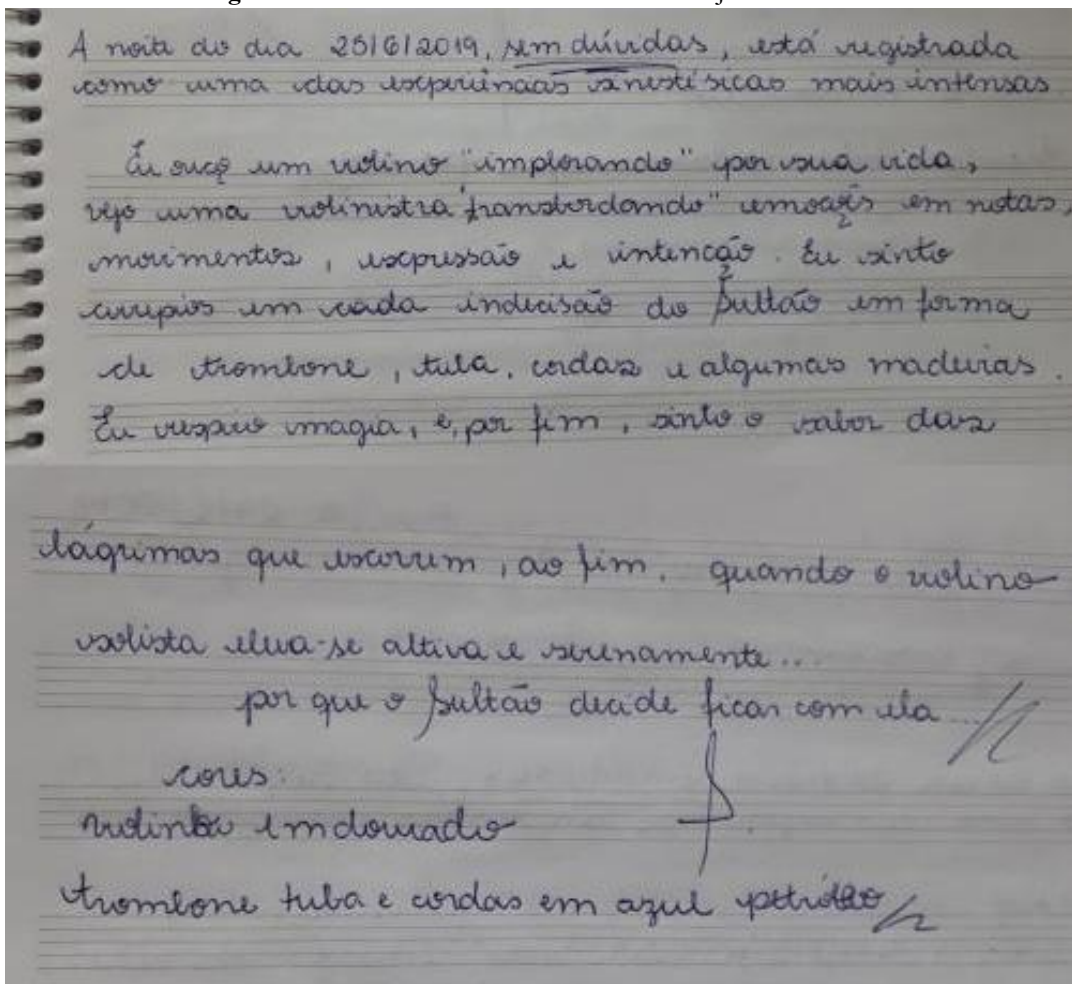 A noite do dia 25/6/2019, sem dúvidas, está registrada
como uma das experiências sinestésicas mais intensas
Eu ouço um violino "implorando" por sua vida,
vejo uma violinista "transbordando" emoções em notas,
movimentos, expressão e intenção. Eu sinto
arrepios em cada indecisão do Sultão em forma
de trombone, tuba, cordas e algumas madeiras.
Eu respiro magia, e, por fim, sinto o sabor das
lágrimas que escorrem, ao fim, quando o violino
solista eleva-se altiva e serenamente...
por que o Sultão decide ficar com ela...
cores:
violino em dourado
trombone tuba e cordas em azul petróleo